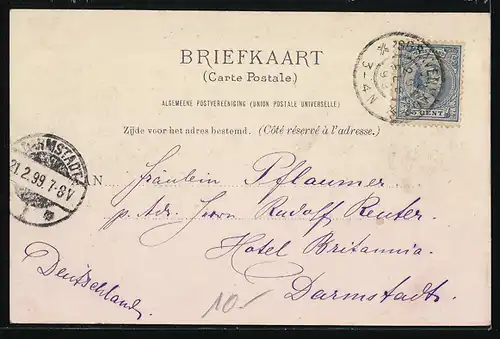 BRIEFKAART
(Carte Postale)
ALGEMEENE POSTVEREENIGING (UNION POSTALE UNIVERSELLE)
Zijde voor het adres bestemd. (Côté réservé à l'adresse.)
3-4 N
5 CENT
DARMSTADT
21.2.99.7-8V
1
AN Fräulein Pflaumer
p. Adr. Herrn Rudolf Reuter
Hotel Britannia.
Darmstadt.
Deutschland.
10.-